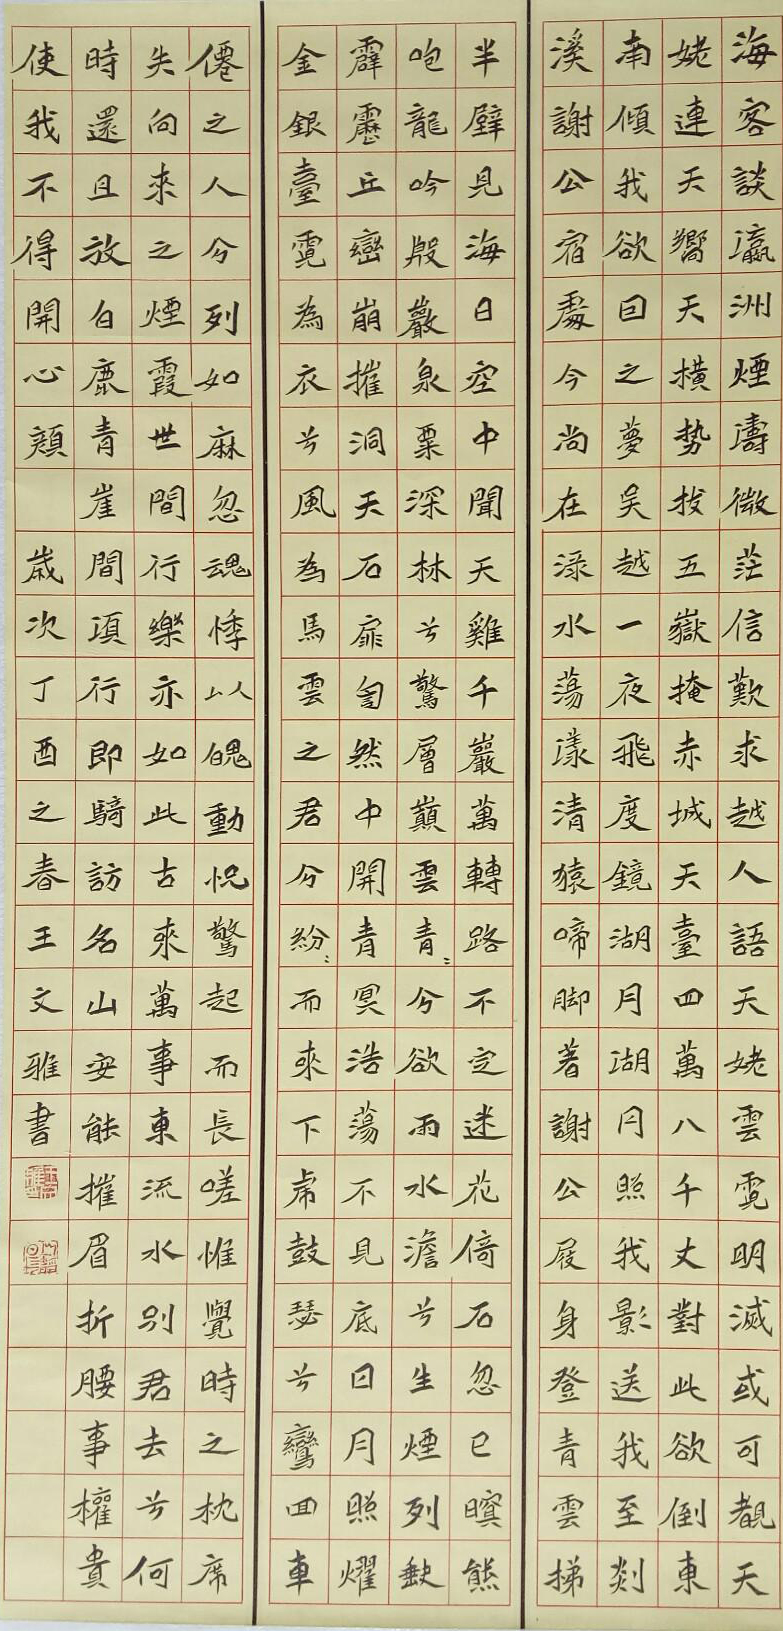 海客談瀛洲煙濤微茫信歎求越人語天姥雲霓明滅或可覩天
姥連天嚮天橫勢拔五嶽掩赤城天臺四萬八千丈對此欲倒東
南傾我欲因之夢吳越一夜飛度鏡湖月湖月照我影送我至剡
溪謝公宿處今尚在淥水蕩漾清猿啼脚著謝公屐身登青雲梯
半壁見海日空中聞天雞千巖萬轉路不定迷花倚石忽已暝熊
咆龍吟殷巖泉栗深林兮驚層巔雲青〻兮欲雨水澹兮生煙列缺
霹靂丘巒崩摧洞天石扉訇然中開青冥浩蕩不見底日月照耀
金銀臺霓為衣兮風為馬雲之君兮紛〻而來下虎鼓瑟兮鸞回車
僊之人兮列如麻忽魂悸以魄動怳驚起而長嗟惟覺時之枕席
失向來之煙霞世間行樂亦如此古來萬事東流水別君去兮何
時還且放白鹿青崖間須行即騎訪名山安能摧眉折腰事權貴
使我不得開心顏 歲次丁酉之春王文雅書